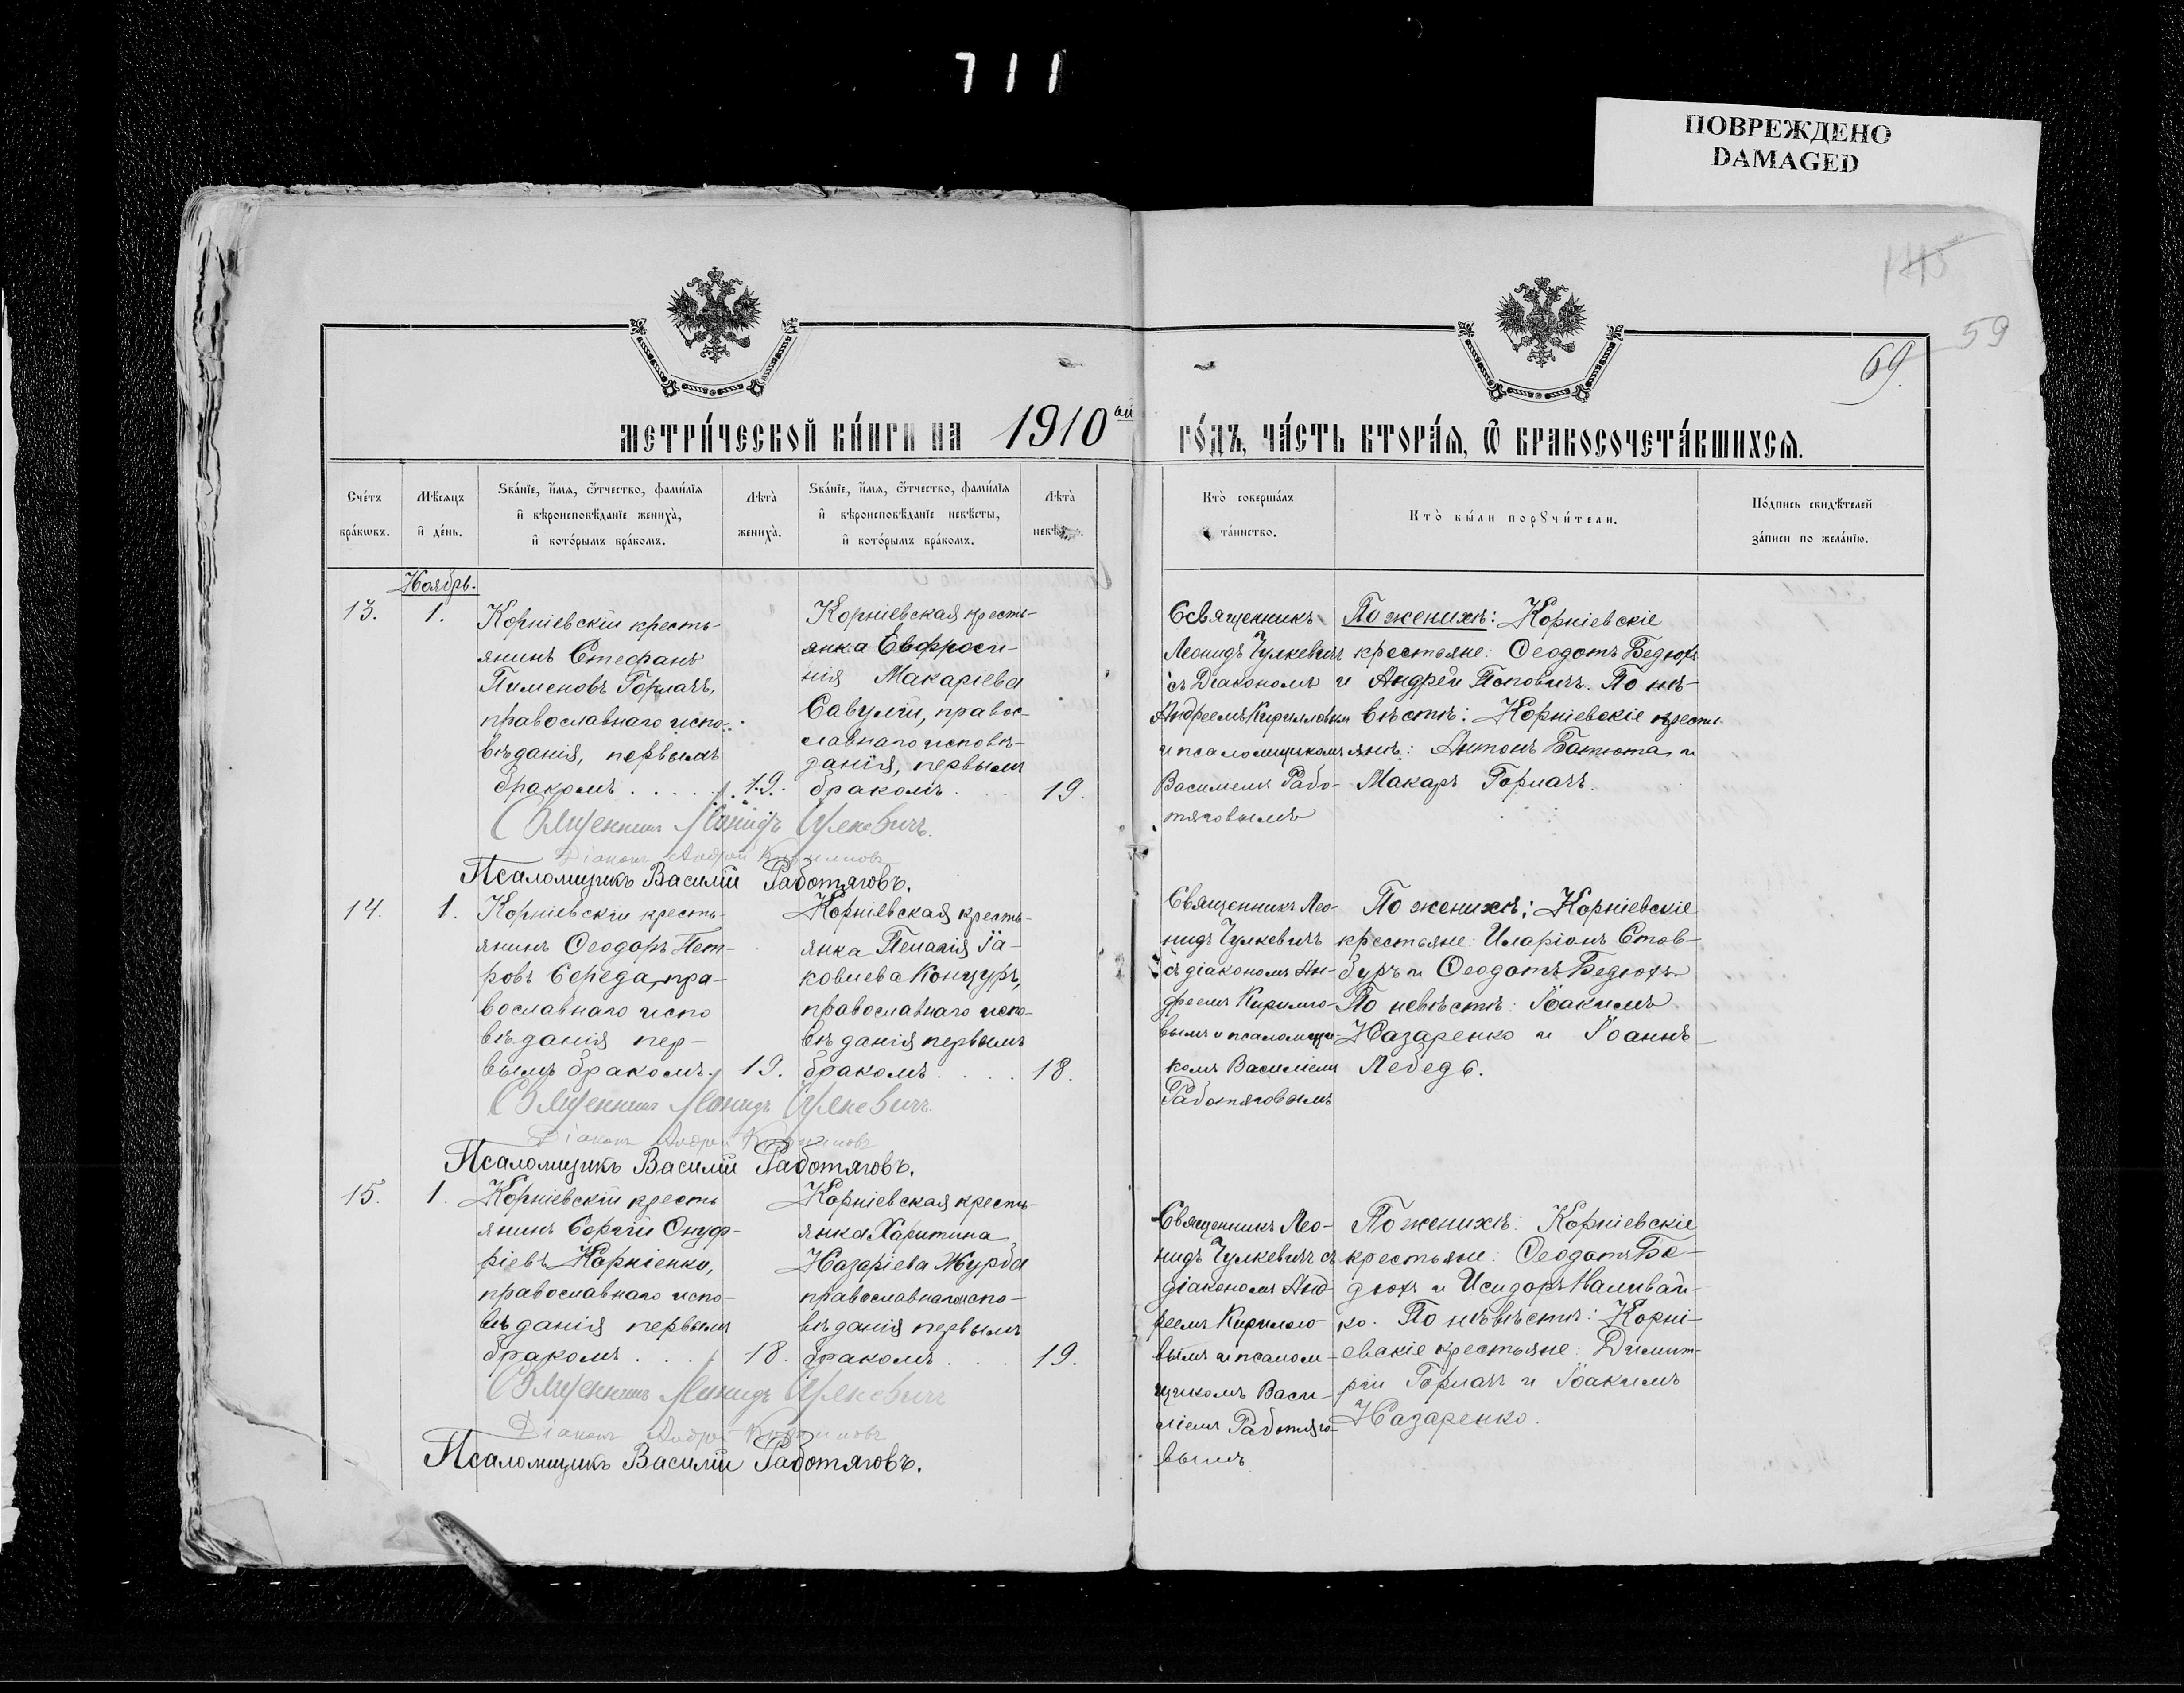 711
ПОВРЕЖДЕНО
DAMAGED
145
59
69.
МЕТРИ́ЧЕСКОЙ КНИ́ГИ НА 1910ый ГО́ДЪ, ЧА́СТЬ ВТОРА́Я, Ѿ БРАКОСОЧЕТА́ВШИХСЯ.
Сче́тъ
бра́кωвъ.
Мѣ́сяцъ
и҆ де́нь.
Ѕва́нїе, и҆́мя, ѻ҆́тчество, фами́лїя
и҆ вѣроисповѣ́данїе жениха̀,
и҆ кото́рымъ бра́комъ.
Лѣ́та
жениха̀.
Ѕва́нїе, и҆́мя, ѻ҆́тчество, фами́лїя
и҆ вѣроисповѣ́данїе невѣ́сты,
и҆ кото́рымъ бра́комъ.
Лѣ́та
Кто̀ соверша́лъ
та́инство.
Кто̀ бы́ли порꙋчи́тели.
По́дпись свидѣ́телей
за́писи по жела́нїю.
Ноябрь.
13.
1.
Корніевскій кресть-
янинъ Стефанъ
Пименовъ Горлачъ,
православнаго испо-
вѣданія, первымъ
бракомъ . . . . .
19.
Корніевская кресть-
янка Евфроси-
нія Макаріева
Савулій, правос-
лавнаго исповѣ-
данія, первымъ
бракомъ . . .
19.
Священникъ
Леонидъ Чулкевичъ
съ Діакономъ
Андреемъ Кирилловым
и псаломщикомъ
Василіемъ Рабо-
тяговымъ
По женихѣ: Корніевскіе
крестьяне: Ѳеодотъ Бедюхъ
и Андрей Поповичъ. По не-
вѣстѣ: Корніевскіе кресть-
яне: Антонъ Батюта и
Макаръ Горлачъ.
Священникъ Леонидъ Чулкевичъ.
Діаконъ Андрей Кирилловъ
Псаломщикъ Василій Работяговъ.
14.
1.
Корніевскій кресть-
янинъ Ѳеодоръ Пет-
ровъ Середа, пра-
вославнаго испо
вѣданія пер-
вымъ бракомъ.
19.
Корніевская кресть-
янка Пелагія Іа-
ковлева Концуръ,
православнаго испо-
вѣданія первымъ
бракомъ . . . .
18.
Священникъ Лео-
нидъ Чулкевичъ
съ діакономъ Ан-
дреемъ Кирилло-
вымъ и псаломщи-
комъ Василіемъ
Работяговымъ
По женихѣ; Корніевскіе
крестьяне: Иларіонъ Стов-
буръ и Ѳеодотъ Бедюхъ.
По невѣстѣ: Іоакимъ
Назаренко и Іоаннъ
Лебедь.
Священникъ Леонидъ Чулкевичъ.
Діаконъ Андрей Кирилловъ
Псаломщикъ Василій Работяговъ.
15.
1.
Корніевскій кресть
янинъ Сергій Онуф-
ріевъ Корніенко,
православнаго испо-
вѣданія первымъ
бракомъ . . .
18.
Корніевская кресть-
янка Харитина
Назаріева Журба
православнаго испо-
вѣданія первымъ
бракомъ . . .
19.
Священникъ Лео-
нидъ Чулкевичъ съ
діакономъ Анд-
реемъ Кирилло-
вымъ и псалом-
щикомъ Васи-
ліемъ Работяго-
вымъ
По женихѣ: Корніевскіе
крестьяне: Ѳеодотъ Бе-
дюхъ и Исидоръ Наливай-
ко. По невѣстѣ: Корні-
евскіе крестьяне: Димит-
рій Горлачъ и Іоакимъ
Назаренко.
Священникъ Леонидъ Чулкевичъ
Діаконъ Андрей Кирилловъ
Псаломщикъ Василій Работяговъ.